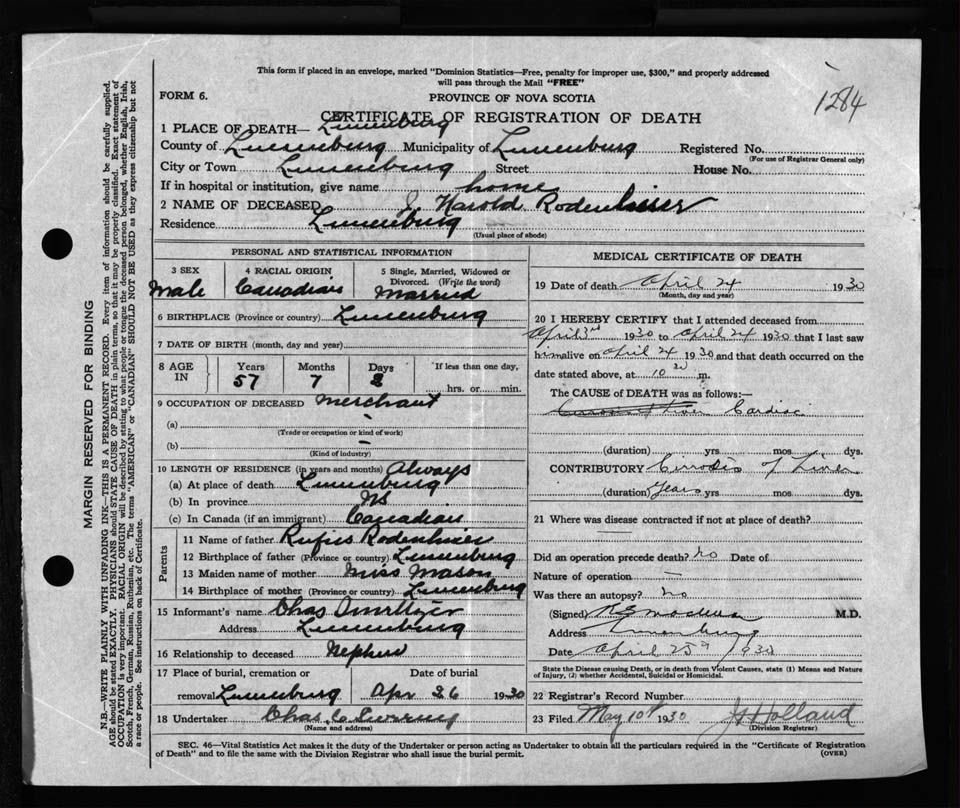 This form if placed in an envelope, marked "Dominion Statistics—Free, penalty for improper use, $300," and properly addressed
will pass through the Mail "FREE"
FORM 6.
PROVINCE OF NOVA SCOTIA
1284
CERTIFICATE OF REGISTRATION OF DEATH
1 PLACE OF DEATH— Lunenburg
County of Lunenburg Municipality of Lunenburg Registered No.
(For use of Registrar General only)
City or Town Lunenburg Street House No.
If in hospital or institution, give name home
2 NAME OF DECEASED J Harold Rodenhiser
Residence Lunenburg
(Usual place of abode)
PERSONAL AND STATISTICAL INFORMATION
3 SEX 4 RACIAL ORIGIN 5 Single, Married, Widowed or
Divorced. (Write the word)
Male Canadian Married
6 BIRTHPLACE (Province or country) Lunenburg
7 DATE OF BIRTH (month, day and year)
8 AGE IN Years Months Days If less than one day,
57 7 2 hrs. or min.
9 OCCUPATION OF DECEASED Merchant
(a) -
(Trade or occupation or kind of work)
(b) -
(Kind of industry)
10 LENGTH OF RESIDENCE (in years and months) Always
(a) At place of death Lunenburg
(b) In province NS
(c) In Canada (if an immigrant) Canadian
Parents
11 Name of father Rufus Rodenhiser
12 Birthplace of father (Province or country) Lunenburg
13 Maiden name of mother Miss Mason
14 Birthplace of mother (Province or country) Lunenburg
15 Informant's name Chas
Address Lunenburg
16 Relationship to deceased Nephew
17 Place of burial, cremation or Date of burial
removal Lunenburg Apr 26 1930
18 Undertaker Chas C
(Name and address)
MEDICAL CERTIFICATE OF DEATH
19 Date of death April 24 1930
(Month, day and year)
20 I HEREBY CERTIFY that I attended deceased from
April 3rd 1930 to April 24 1930 that I last saw
him alive on April 24 1930 and that death occurred on the
date stated above, at 10 m.
The CAUSE of DEATH was as follows:—
Liver Cardiac
(duration) yrs. mos. dys.
CONTRIBUTORY Cirrosis of Liver
(duration) Years yrs. mos. dys.
21 Where was disease contracted if not at place of death?
Did an operation precede death? no Date of
Nature of operation -
Was there an autopsy? no
(Signed) M.D.
Address Lunenburg
Date April 25th 1930
State the Disease causing Death, or in death from Violent Causes, state (1) Means and Nature
of Injury, (2) whether Accidental, Suicidal or Homicidal.
22 Registrar's Record Number
23 Filed May 10th 1930 Holland
(Division Registrar)
SEC. 46—Vital Statistics Act makes it the duty of the Undertaker or person acting as Undertaker to obtain all the particulars required in the "Certificate of Registration
of Death" and to file the same with the Division Registrar who shall issue the burial permit.
(OVER)
MARGIN RESERVED FOR BINDING
N.B.—WRITE PLAINLY WITH UNFADING INK—THIS IS A PERMANENT RECORD. Every item of information should be carefully supplied.
AGE should be stated EXACTLY. PHYSICIANS should STATE CAUSE OF DEATH in plain terms, so that it may be properly classified. Exact statement of
OCCUPATION is very important. RACIAL ORIGIN will be described by stating to what people or tongue the deceased person belonged, whether English, Irish,
Scotch, French, German, Russian, Ruthenian, etc. The terms "AMERICAN" or "CANADIAN" SHOULD NOT BE USED as they express citizenship but not
a race or people. See instructions on back of Certificate.